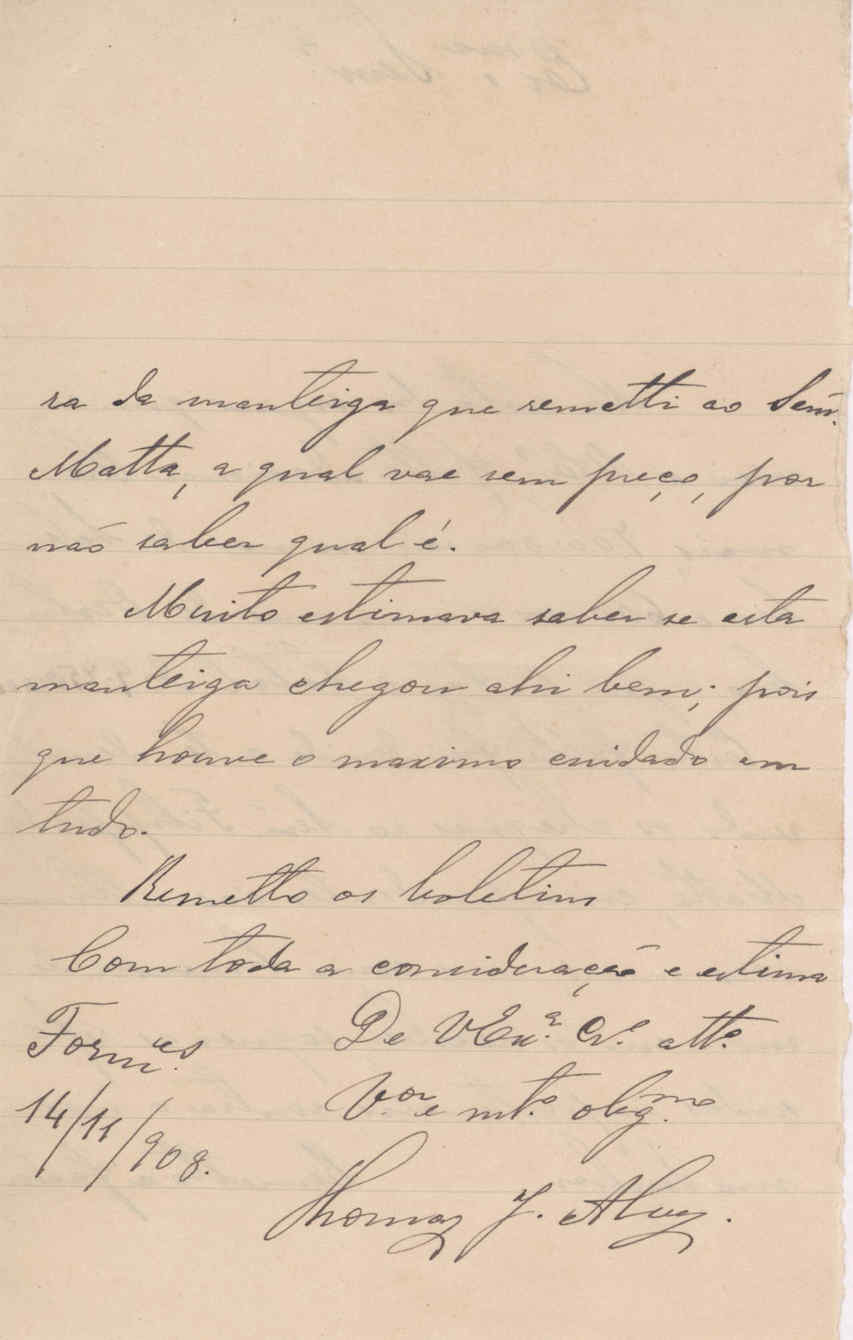 ra da manteiga que remetti ao Senr.
Matta, a qual vae sem preço, por
não saber qual é.
Muito estimava saber se esta
manteiga chegou ahi bem; pois
que houve o maximo cuidado em
tudo.
Remetto os boletins
Com toda a consideração e estima
De VExª. Crº. attº.
Vor. e mtº. obigmo.
14/11/908.
Thomaz J. Alvez.